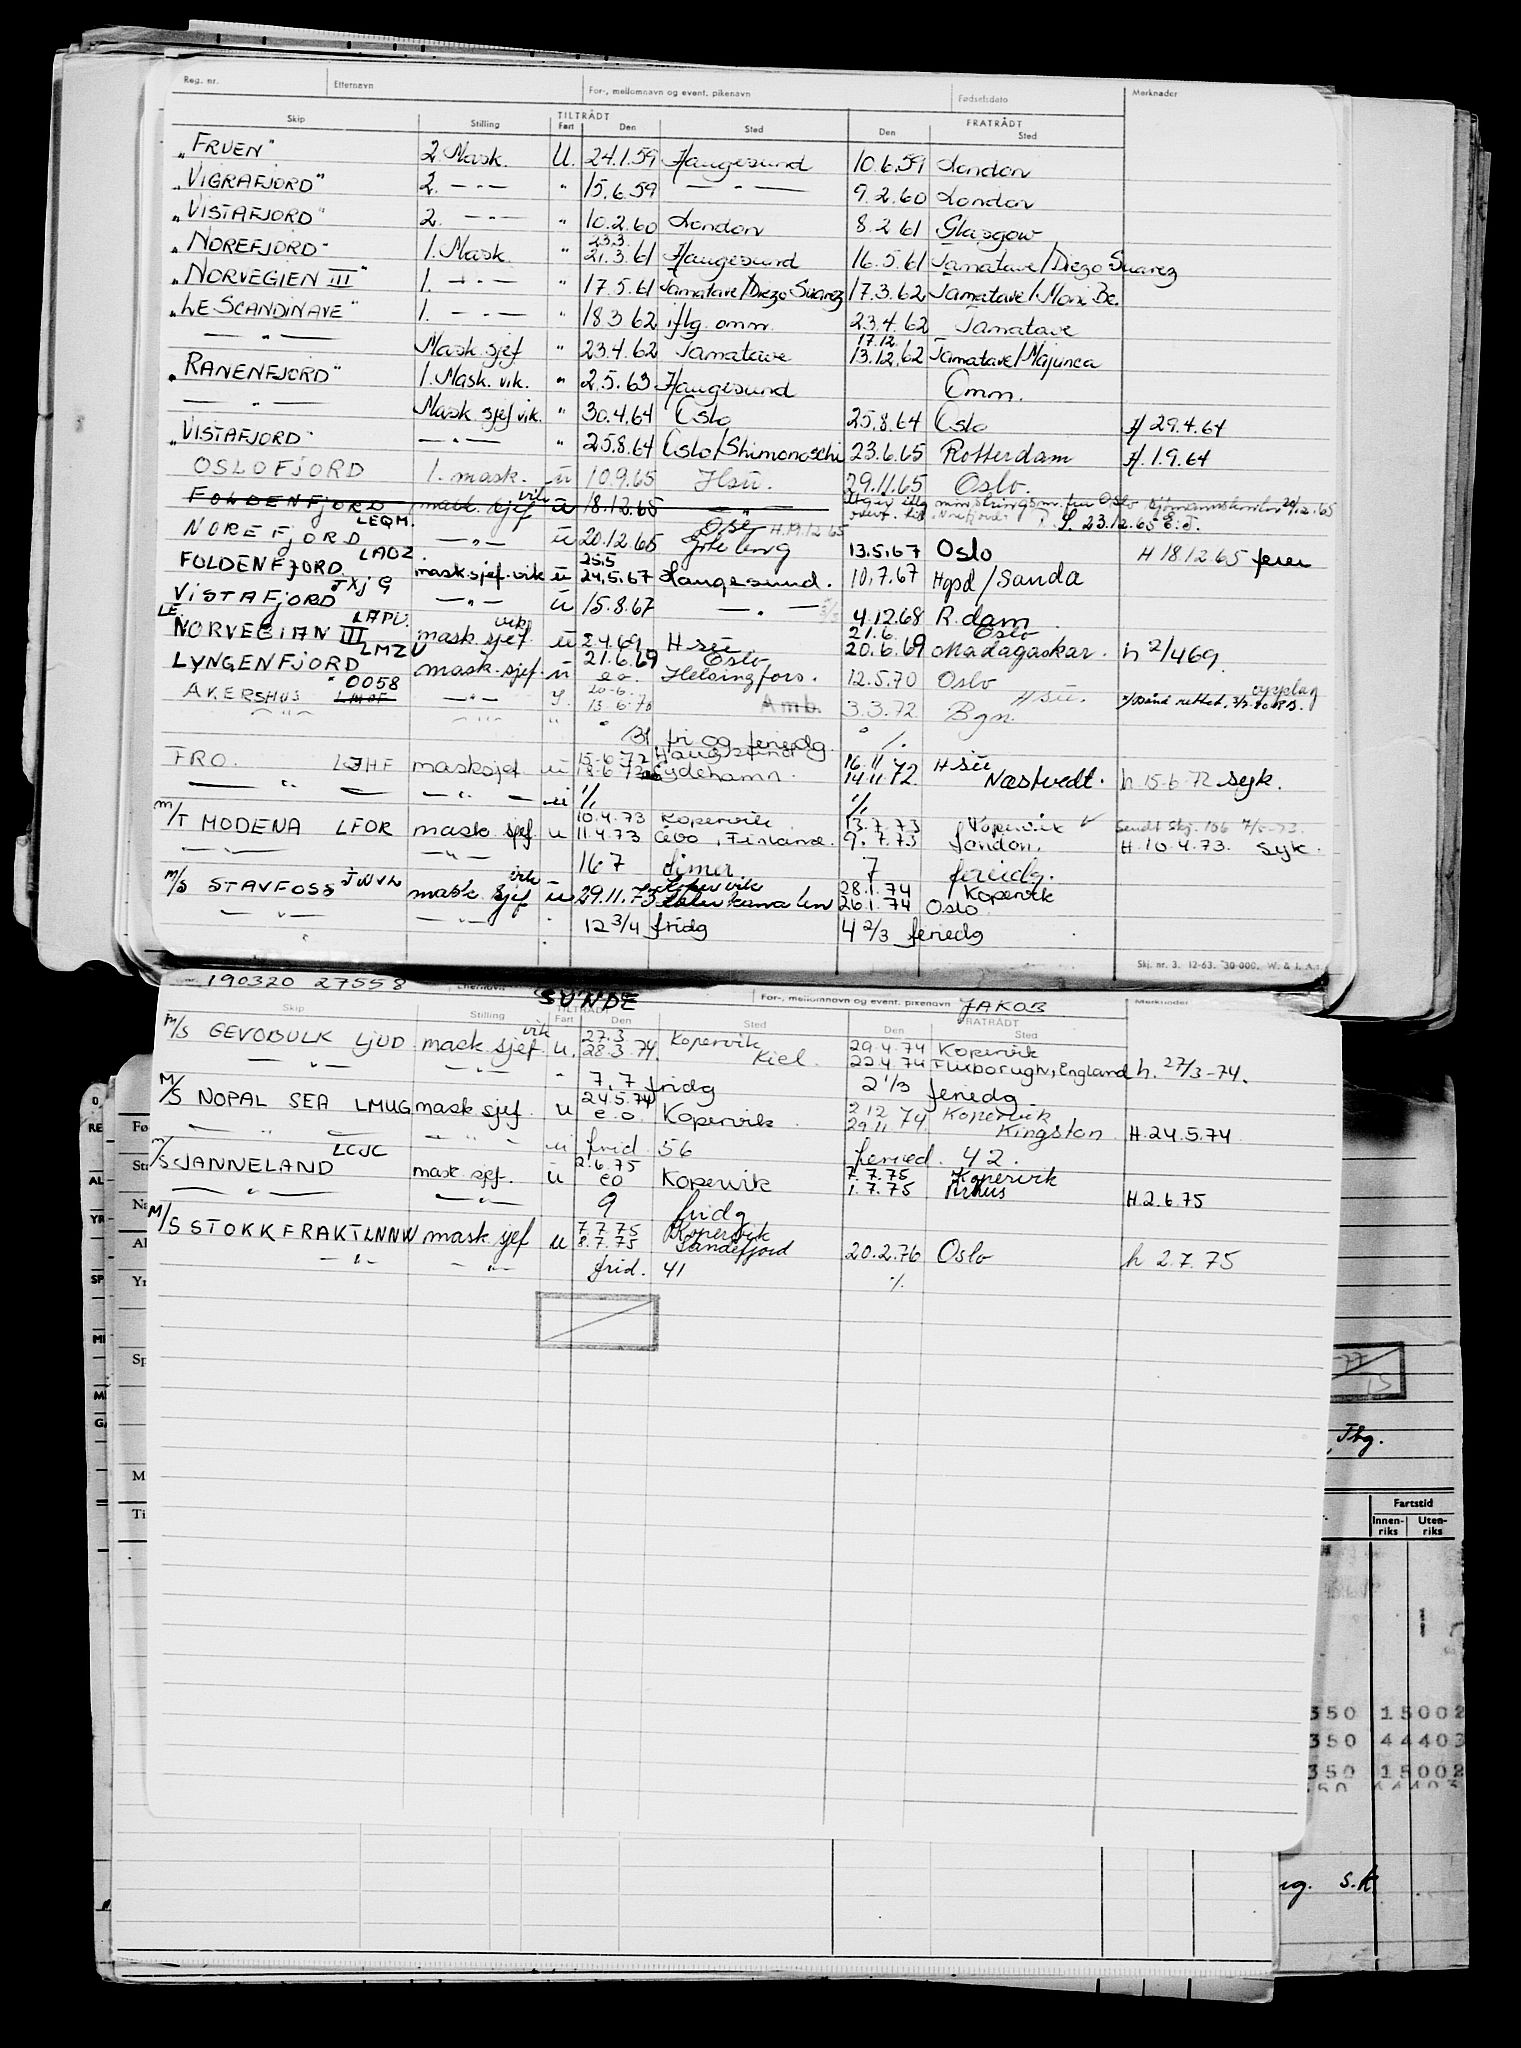 Reg. nr. Etternavn For-, mellomnavn og event. pikenavn Fødselsdato Merknader
Skip Stilling TILTRÅDT Fart Den Sted FRATRÅDT Den Sted
"FRUEN" 2 Mask. U. 24.1.59 Haugesund 10.6.59 London
"VIGRAFJORD" 2. -"- " 15.6.59 -"- 9.2.60 London
"VISTAFJORD" 2. -"- " 10.2.60 London 8.2 61 Glasgow
"NOREFJORD" 1. Mask " 23.3. 21.3.61 Haugesund 16.5.61 Tamatave/Diego Suarez
"NORVEGIEN III" 1. -"- " 17.5.61 Tamatave/Diego Suarez 17.3.62 Tamatave/
"LE SCANDINAVE" 1. -"- " 18.3 62 iflg. omm. 23.4.62 Tamatave
-"- Mask sjef " 23.4.62 Tamatave 17.12 13.12.62 Tamatave/Majunca
"RANENFJORD" 1. Mask. vik. " 2.5.63 Haugesund Omm.
-"- Mask sjef vik. " 30.4.64 Oslo 25.8.64 Oslo H 29.4.64
"VISTAFJORD" -"- " 25.8.64 Oslo/Shimonoschi 23.6.65 Rotterdam H. 1.9.64
OSLOFJORD 1. mask. u 10.9.65 Hsu. 29.11.65 Oslo.
FOLDENFJORD mask. sjef vik u 18.12.65 -"-
NOREFJORD LEQM. -"- u 20.12.65 Göteborg H.19.12 65 13.5.67 Oslo H 18 12 65 ferie
FOLDENFJORD LAOZ. mask.sjef.vik u 25.5 24.5.67 Haugesund. 10.7.67 Hgsd/Sanda
VISTAFJORD TXJG -"- u 15.8.67 -"- 4.12.68 R.dam
LE. NORVEGIAN III LAPU. mask. sjef. vik u 2.4.69 Hsu 21.6. 20.6.69 Oslo Madagaskar. h 2/4 69
LYNGENFJORD LMZU mask. sjef. u 21.6.69 e.o. Oslo Helsingfors. 12.5.70 Oslo
AKERSHUS "0058 LMOF -"- 20-6. 13 6.70 Amb. 3.3.72 Hsu. Bgn. opplag
-"- " 31 fri og feriedg. " ./.
FRO. LJHF masksjef u 15-6-72 Haugesund Sydehamn. 16.11 72 14.11.72. Hsu Næstvedt. h 15-6-72 syk.
-"- -"- u ./. ./.
M/T MODENA LFOR mask. sjef. u 10.4.73 11.4.73 Kopervik Åbo, Finland. 13.7.73 9.7.73 Kopervik London. Sendt Skj. 106 H. 10.4.73. syk.
-"- -"- 167 timer 7 feriedg.
M/S STAVFOSS JWVL mask. sjef vik u 29.11.73 Kopervik 28.1.74 26.1.74 Kopervik Oslo
-"- -"- " 12 3/4 fridg 4 2/3 feriedg
Skj. nr. 3. 12-63. 30-000. W. & I. A.
190320 27558 Etternavn SUNDE For-, mellomnavn og event. pikenavn JAKOB Merknader
Skip Stilling TILTRÅDT Fart Den Sted Den FRATRÅDT Sted
M/S GEVOBULK LJUD mask. sjef. vik u. 27.3 28.3.74. Kopervik Kiel. 29.4.74 22.4.74 Kopervik England h. 27/3-74.
-"- -"- " 7,7 fridg 2 1/3 feriedg.
M/S NOPAL SEA LMUG mask sjef. u 24.5.74 e.o. Kopervik 2.12 74 29.11.74 Kopervik Kingston H.24.5.74
-"- -"- u frid 56 feried. 42.
M/S JANNELAND LCJC mask. sjef. u 2.6.75 eo Kopervik 7.7.75 1.7.75 Kopervik Århus H.2.6.75
-"- -"- 9 fridg
M/S STOKKFRAKT LNNW mask. sjef u 7.7.75 8.7.75 Kopervik Sandefjord 20.2.76 Oslo h 2.7.75
-"- -"- frid. 41 ./.
Thg.
Fartstid
Innen-riks Uten-riks
350 15002
350 44403
350 15002
s.k